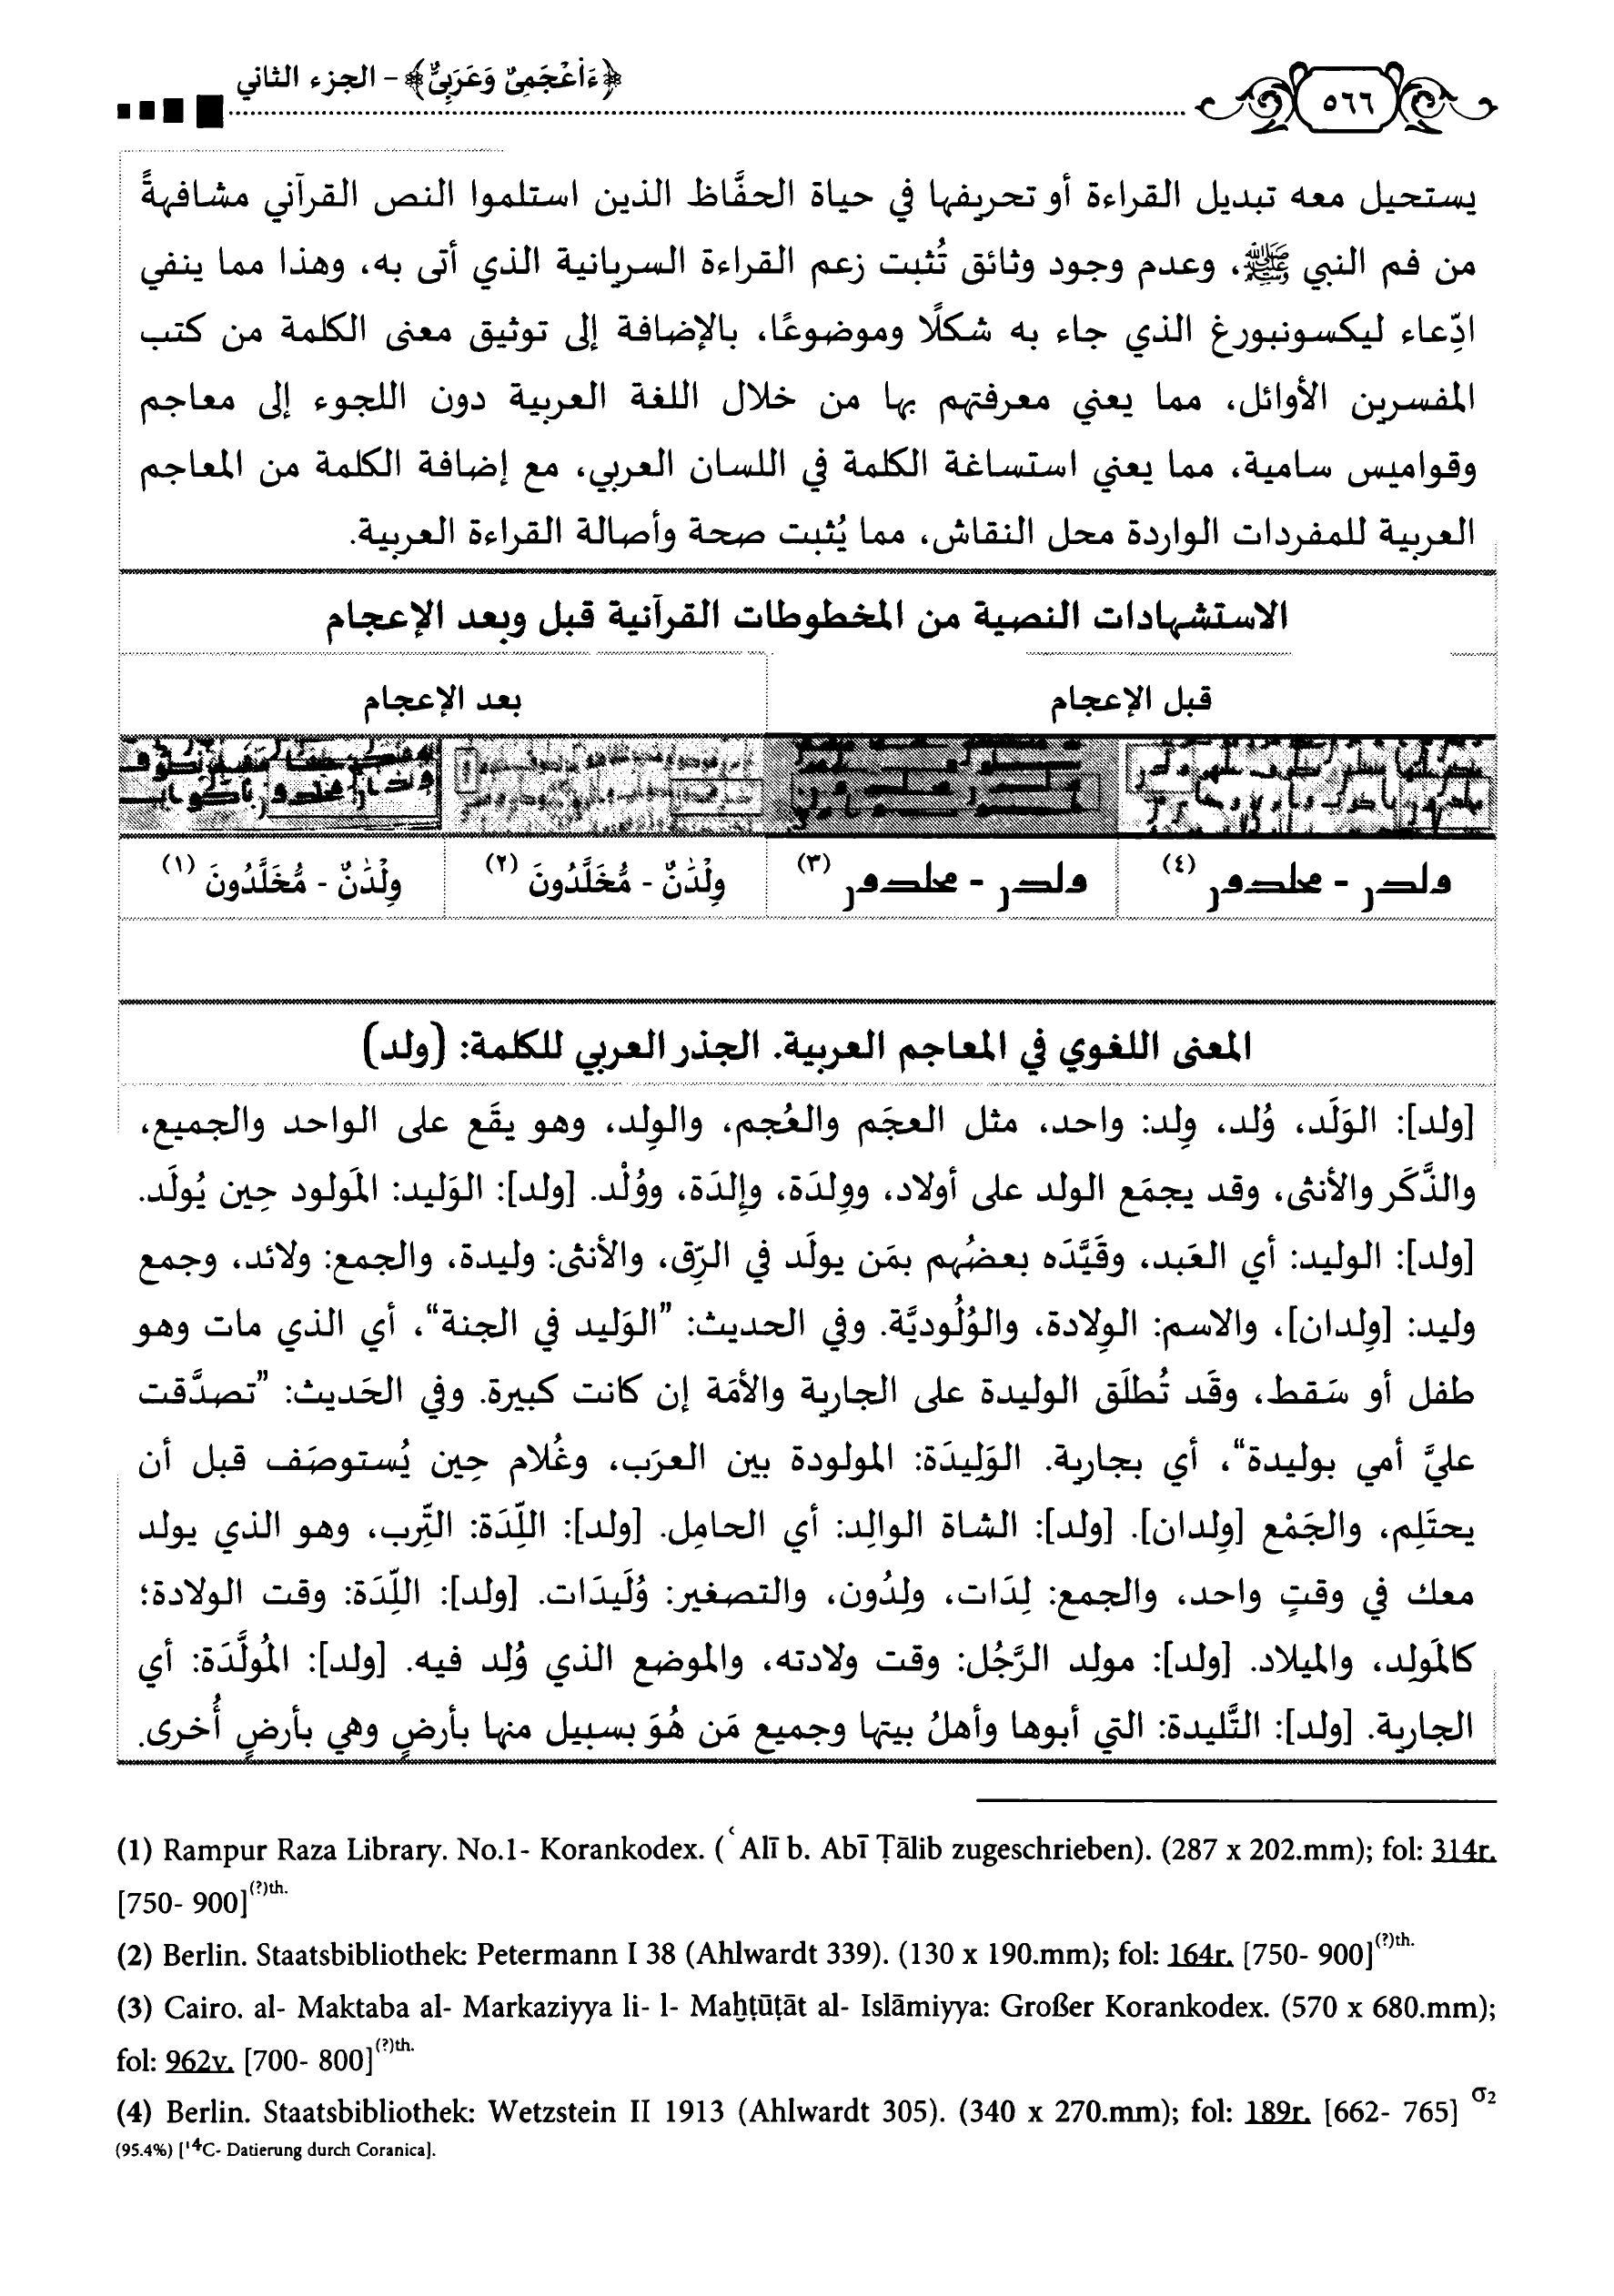 ﴿ءَا۬عْجَمِىٌّ وَعَرَبِىٌّ﴾ – الجزء الثاني
٥٦٦
يستحيل معه تبديل القراءة أو تحريفها في حياة الحفَّاظ الذين استلموا النص القرآني مشافهةً
من فم النبي ﷺ، وعدم وجود وثائق تُثبت زعم القراءة السريانية الذي أتى به، وهذا مما ينفي
ادِّعاء ليكسونبورغ الذي جاء به شكلًا وموضوعًا، بالإضافة إلى توثيق معنى الكلمة من كتب
المفسرين الأوائل، مما يعني معرفتهم بها من خلال اللغة العربية دون اللجوء إلى معاجم
وقواميس سامية، مما يعني استساغة الكلمة في اللسان العربي، مع إضافة الكلمة من المعاجم
العربية للمفردات الواردة محل النقاش، مما يُثبت صحة وأصالة القراءة العربية.
الاستشهادات النصية من المخطوطات القرآنية قبل وبعد الإعجام
قبل الإعجام
بعد الإعجام
(٤)
(٣)
وِلْدَٰنٌ - مُّخَلَّدُونَ (٢)
وِلْدَٰنٌ - مُّخَلَّدُونَ (١)
المعنى اللغوي في المعاجم العربية. الجذر العربي للكلمة: (ولد)
[ولد]: الوَلَد، وُلد، وِلد: واحد، مثل العجَم والعُجم، والوِلد، وهو يقَع على الواحد والجميع،
والذَّكَر والأنثى، وقد يجمَع الولد على أولاد، وولِدَة، وإِلدَة، ووُلْد. [ولد]: الوَليد: المَولود حِين يُولَد.
[ولد]: الوليد: أي العَبد، وقَيَّدَه بعضُهم بمَن يولَد في الرِّق، والأنثى: وليدة، والجمع: ولائد، وجمع
وليد: [وِلدان]، والاسم: الوِلادة، والوُلُوديَّة. وفي الحديث: ”الوَليد في الجنة“، أي الذي مات وهو
طفل أو سَقط، وقَد تُطلَق الوليدة على الجارية والأمَة إن كانت كبيرة. وفي الحَديث: ”تصدَّقت
عليَّ أمي بوليدة“، أي بجارية. الوَلِيدَة: المولودة بين العرَب، وغُلام حِين يُستوصَف قبل أن
يحتَلِم، والجَمْع [وِلدان]. [ولد]: الشاة الوالِد: أي الحامِل. [ولد]: اللِّدَة: التِّرب، وهو الذي يولد
معك في وقتٍ واحد، والجمع: لِدَات، ولِدُون، والتصغير: وُلَيدَات. [ولد]: اللِّدَة: وقت الولادة؛
كالمَولِد، والميلاد. [ولد]: مولِد الرَّجُل: وقت ولادته، والموضع الذي وُلِد فيه. [ولد]: المُولَّدَة: أي
الجارية. [ولد]: التَّليدة: التي أبوها وأهلُ بيتها وجميع مَن هُوَ بسبيل منها بأرضٍ وهي بأرضٍ أُخرى.
(1) Rampur Raza Library. No.1- Korankodex. (ʿAlī b. Abī Ṭālib zugeschrieben). (287 x 202.mm); fol: 314r.
[750- 900](?)th.
(2) Berlin. Staatsbibliothek: Petermann I 38 (Ahlwardt 339). (130 x 190.mm); fol: 164r. [750- 900](?)th.
(3) Cairo. al- Maktaba al- Markaziyya li- l- Maḫṭūṭāt al- Islāmiyya: Großer Korankodex. (570 x 680.mm);
fol: 962v. [700- 800](?)th.
(4) Berlin. Staatsbibliothek: Wetzstein II 1913 (Ahlwardt 305). (340 x 270.mm); fol: 189r. [662- 765] σ2
(95.4%) [14C- Datierung durch Coranica].